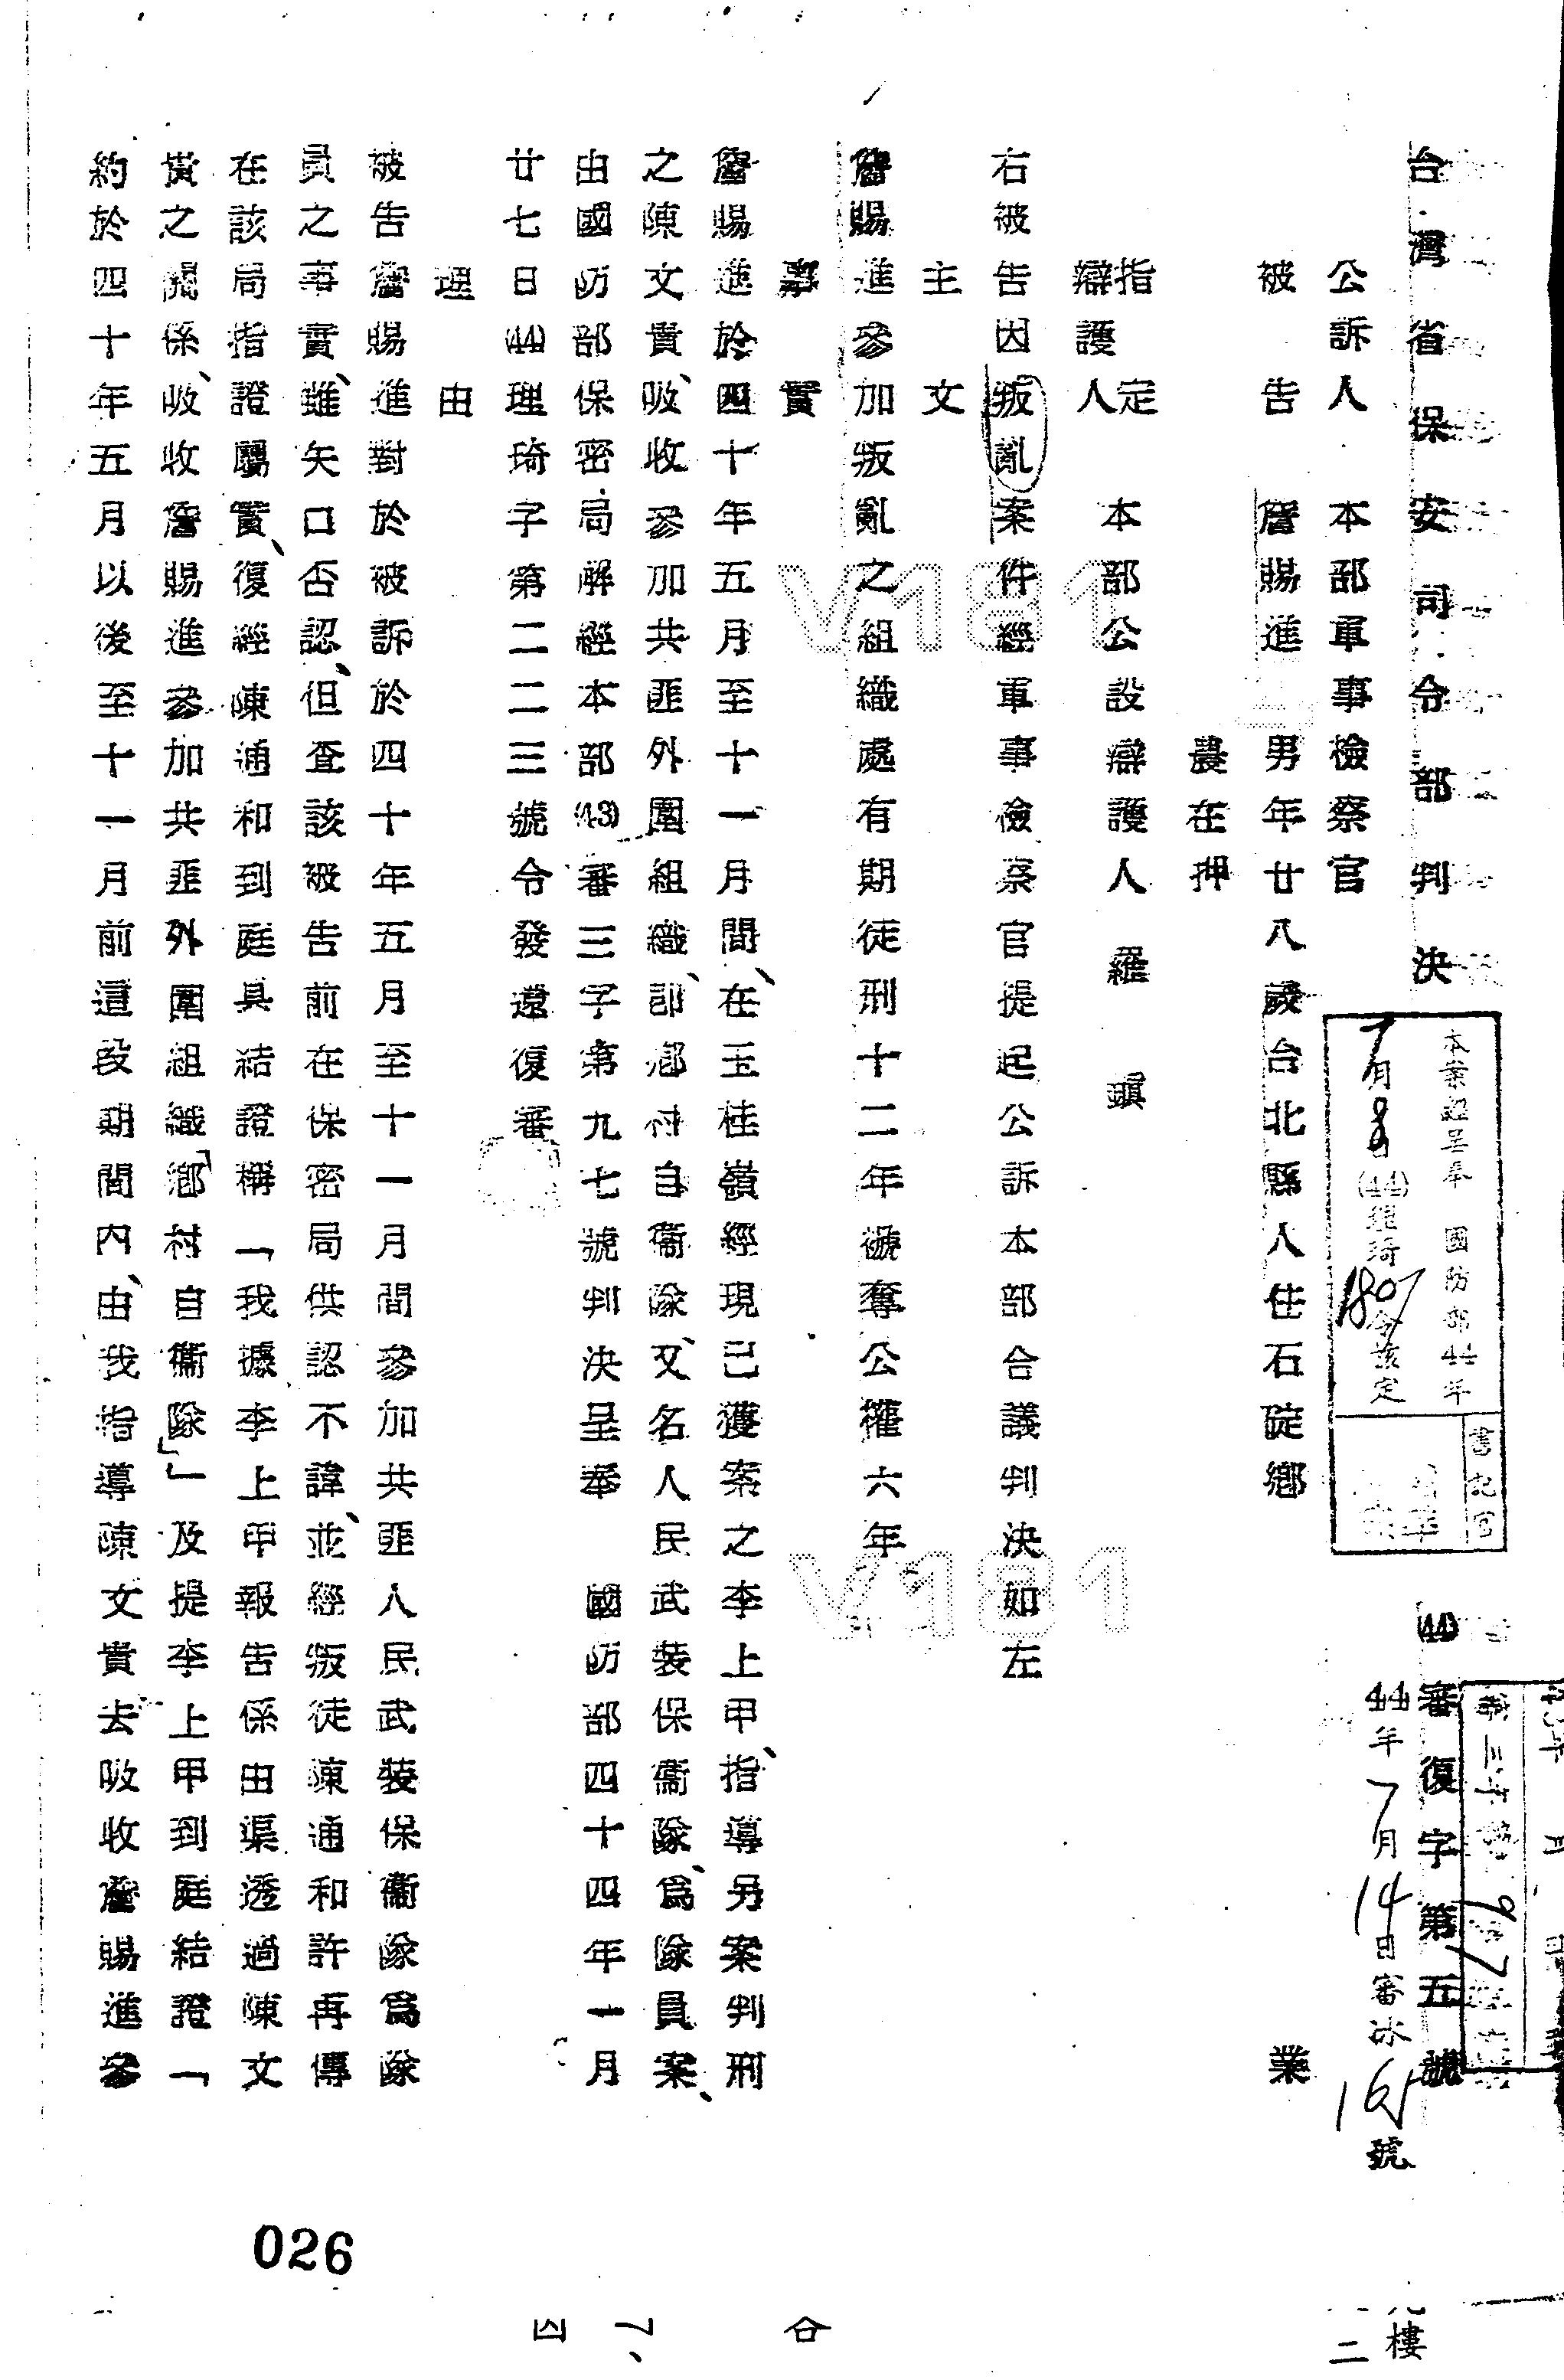 台灣省保安司令部判決
44審復字第五號
44年7月14日審冰165號
本案經呈奉 國防部44年
7月8日(44)理琦1807令核定
書記官
公訴人 本部軍事檢察官
被告 詹賜進 男年廿八歲台北縣人住石碇鄉業
農在押
指定
辯護人 本部公設辯護人羅鎮
右被告因叛亂案件經軍事檢察官提起公訴本部合議判決如左
主文
詹賜進參加叛亂之組織處有期徒刑十二年褫奪公權六年
事實
詹賜進於四十年五月至十一月間、在玉桂嶺經現已獲案之李上甲、指導另案判刑
之陳文貴、吸收參加共匪外圍組織、即鄉村自衞隊、又名人民武裝保衞隊、為隊員案、
由國防部保密局解經本部(43)審三字第九七號判決呈奉 國防部四十四年一月
廿七日(44)理琦字第二二三號令發還復審
理由
被告詹賜進對於被訴於四十年五月至十一月間參加共匪人民武裝保衞隊為隊
員之事實、雖矢口否認、但查該被告前在保密局供認不諱、並經叛徒陳通和許再傳
在該局指證屬實、復經陳通和到庭具結證稱「我據李上甲報告係由渠透過陳文
貴之關係、吸收詹賜進參加共匪外圍組織「鄉村自衞隊」」及提李上甲到庭結證「
約於四十年五月以後至十一月前這段期間內、由我指導陳文貴去吸收詹賜進參
026
V181
V181
樓
二